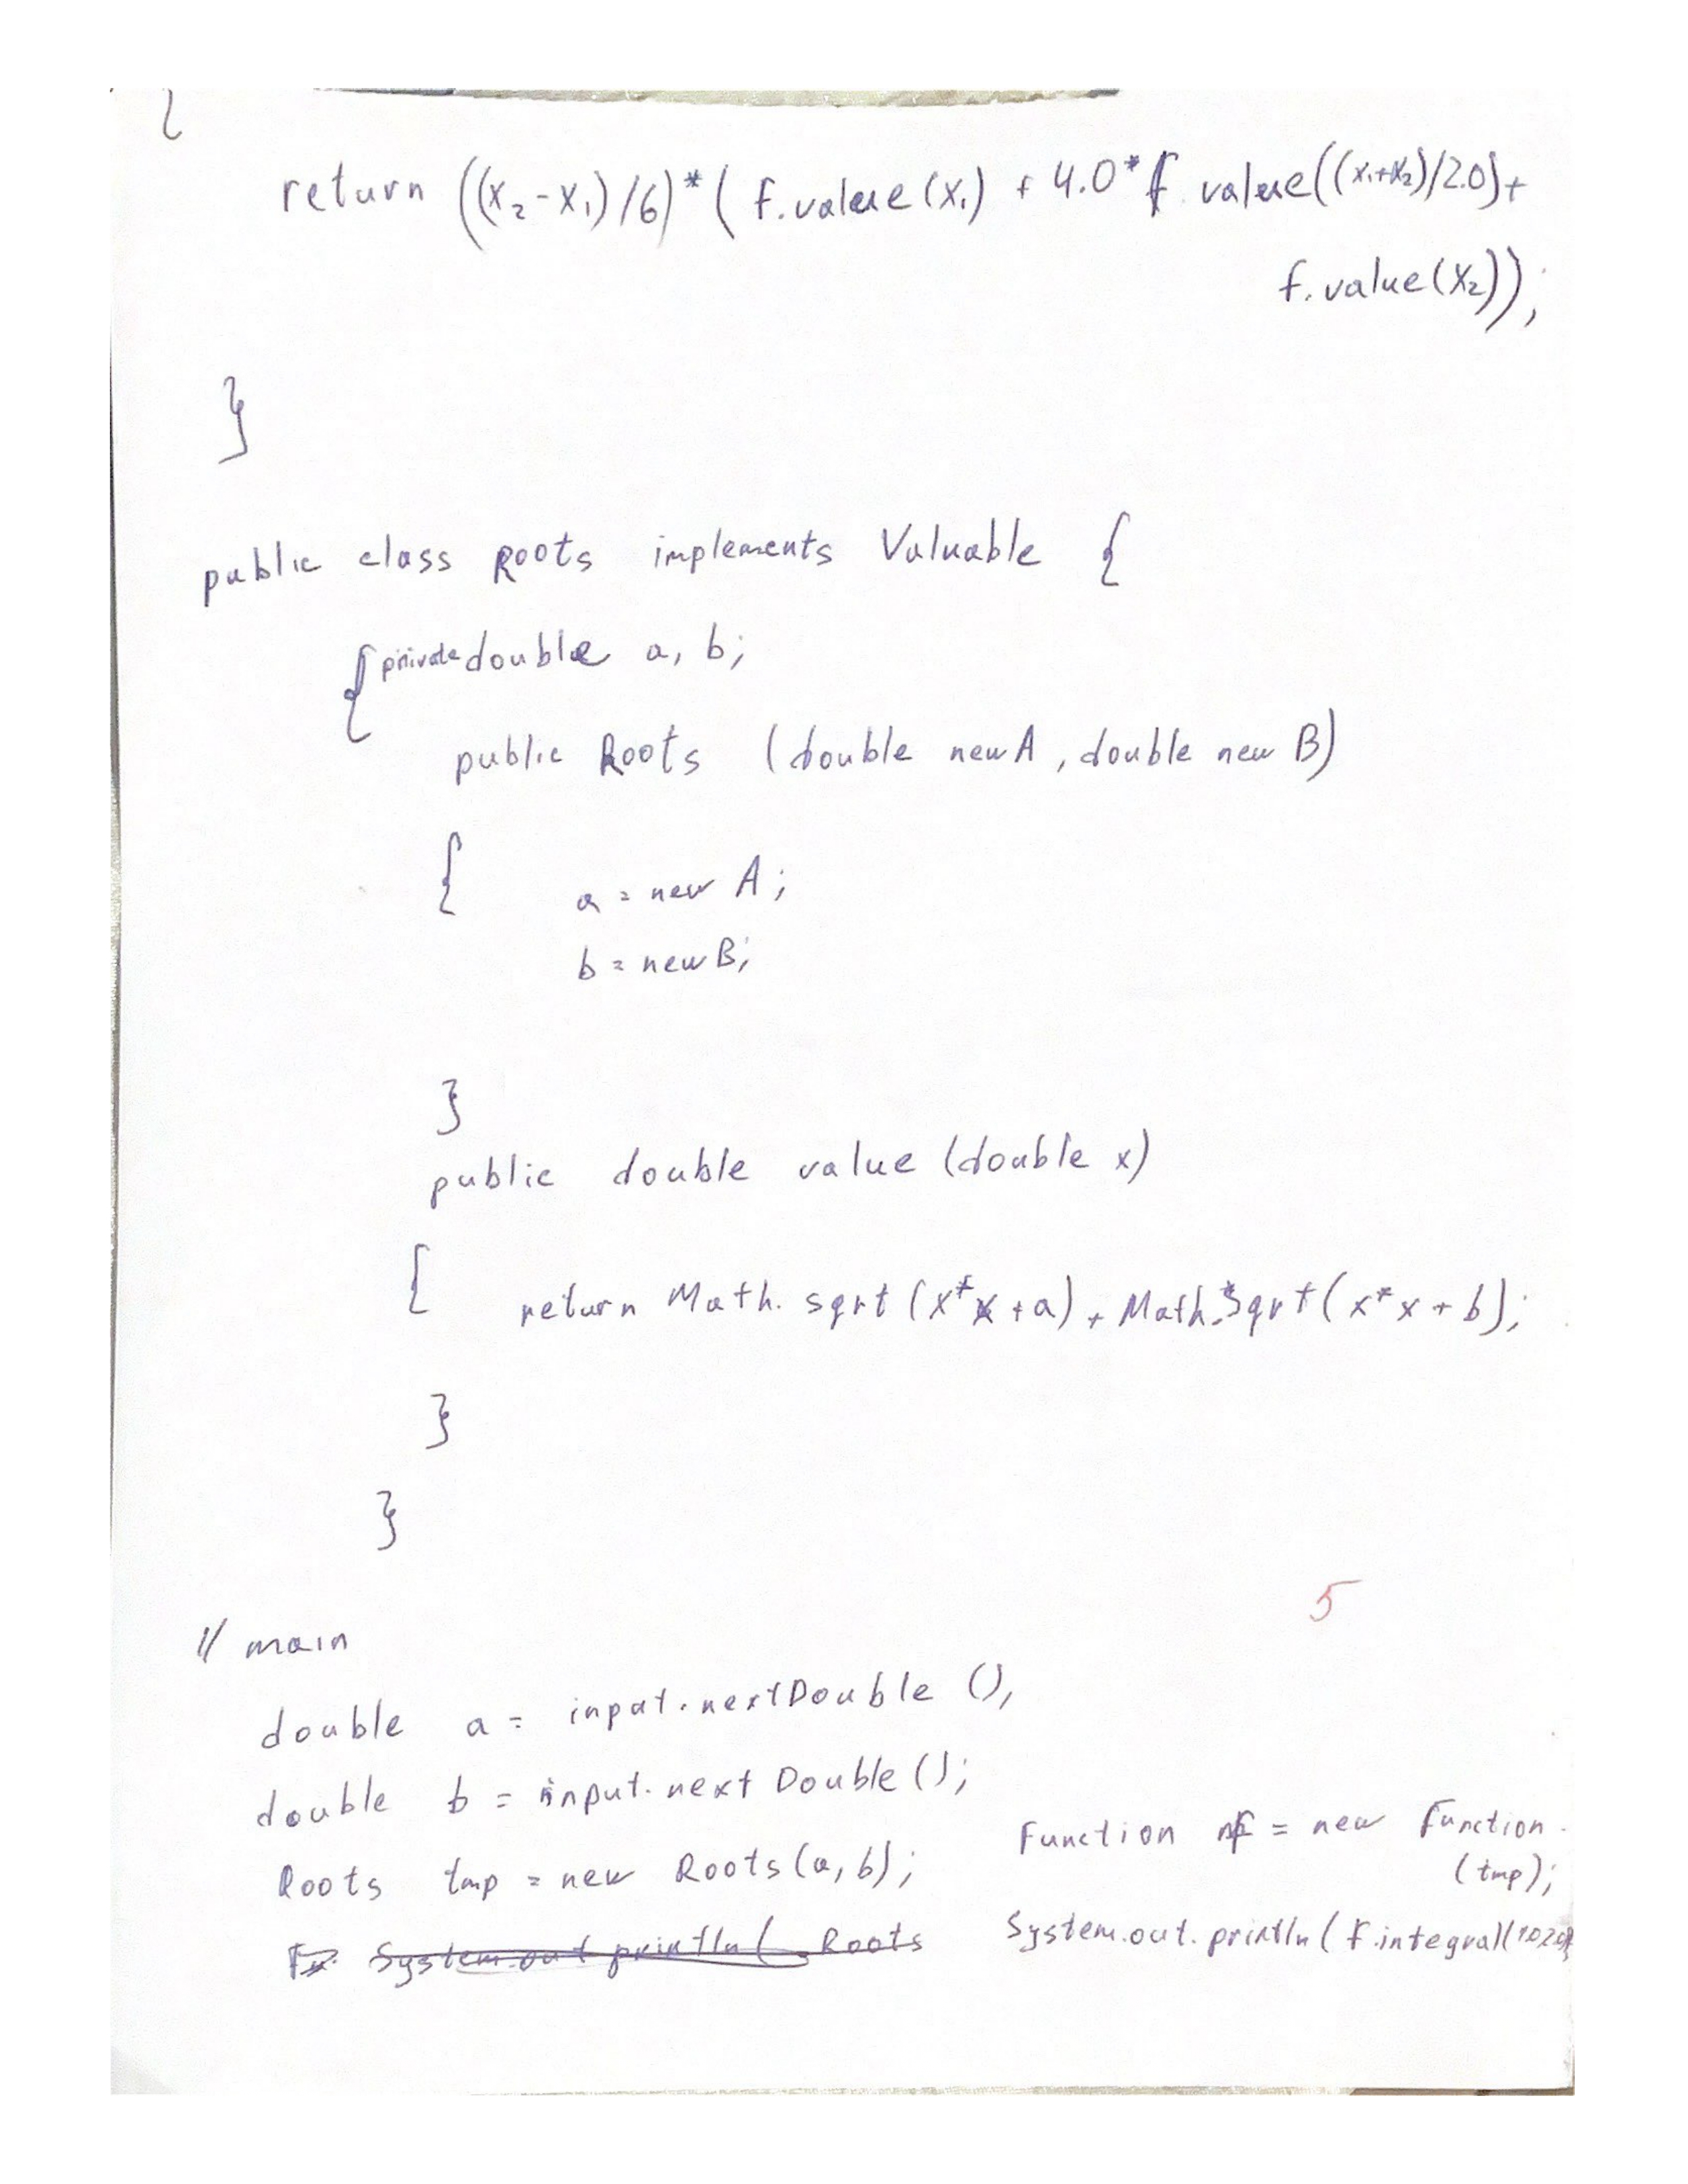 {
return ((x₂-x₁)/6)*(f.value(x₁) + 4.0*f.value((x₁+x₂)/2.0)+
f.value(x₂));
}
public class Roots implements Valuable {
{ private double a, b;
public Roots (double newA, double newB)
{ a = newA;
b = newB;
}
public double value (double x)
{ return Math.sqrt(x*x+a) + Math.sqrt(x*x+b);
}
}
5
// main
double a = input.nextDouble();
double b = input.nextDouble();
Roots tmp = new Roots(a,b);
System.out.println( Roots
Function f = new Function
(tmp);
System.out.println(f.integral(